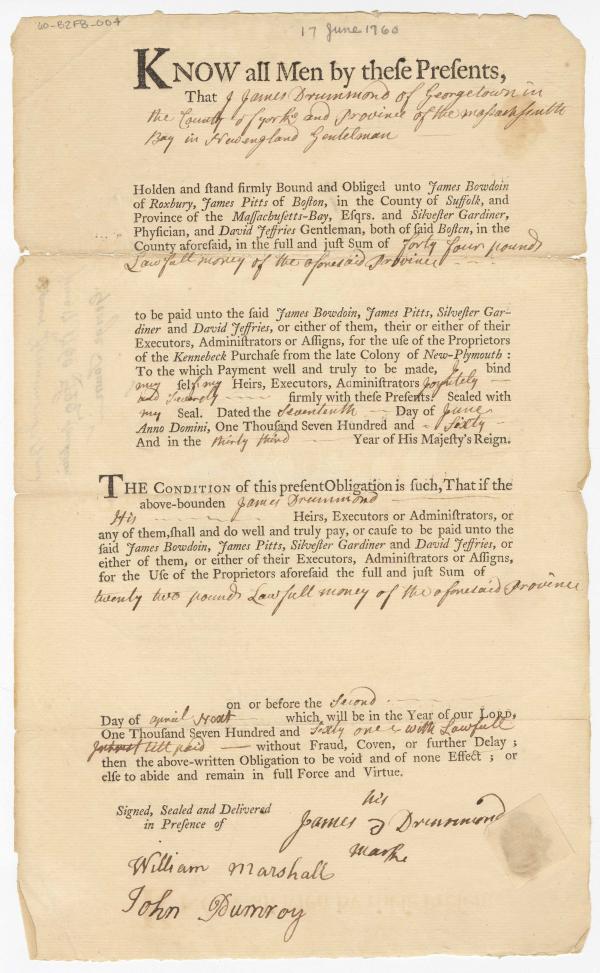 60-B2F8-004
17 June 1760
KNOW all Men by theſe Preſents,
That I James Drummond of Georgetown in
the County of york and Province of the massachsentts
Bay in Newengland Gentelman
Holden and ſtand firmly Bound and Obliged unto James Bowdoin
of Roxbury, James Pitts of Boſton, in the County of Suffolk, and
Province of the Maſſachuſetts-Bay, Eſqrs. and Silveſter Gardiner,
Phyſician, and David Jeffries Gentleman, both of ſaid Boſton, in
the County aforeſaid, in the full and juſt Sum of forty four pounds
Lawfull money of the aforesaid Province
to be paid unto the ſaid James Bowdoin, James Pitts, Silveſter Gar-
diner and David Jeffries, or either of them, their or either of their
Executors, Adminiſtrators or Aſſigns, for the uſe of the Proprietors
of the Kennebeck Purchaſe from the late Colony of New-Plymouth :
To the which Payment well and truly to be made, I bind
my ſelf, my Heirs, Executors, Adminiſtrators Joyntely
and Severly firmly with theſe Preſents. Sealed with
my Seal. Dated the Sevententh Day of June
Anno Domini, One Thouſand Seven Hundred and Sixty
And in the thirty third Year of His Majeſty's Reign.
THE CONDITION of this preſent Obligation is ſuch, That if the
above-bounden James Drummond
His Heirs, Executors or Adminiſtrators, or
any of them, ſhall and do well and truly pay, or cauſe to be paid unto the
ſaid James Bowdoin, James Pitts, Silveſter Gardiner and David Jeffries, or
either of them, or either of their Executors, Adminiſtrators or Aſſigns,
for the Uſe of the Proprietors aforeſaid the full and juſt Sum of
twenty two pounds Lawfull money of the aforesaid Province
on or before the Second
Day of april Next which will be in the Year of our LORD,
One Thouſand Seven Hundred and Sixty one with Lawfull
Intrest till paid without Fraud, Coven, or further Delay ;
then the above-written Obligation to be void and of none Effect ; or
elſe to abide and remain in full Force and Virtue.
Signed, Sealed and Delivered
in Preſence of
his
James Drummond
Marke
William Marshall
John Dumroy